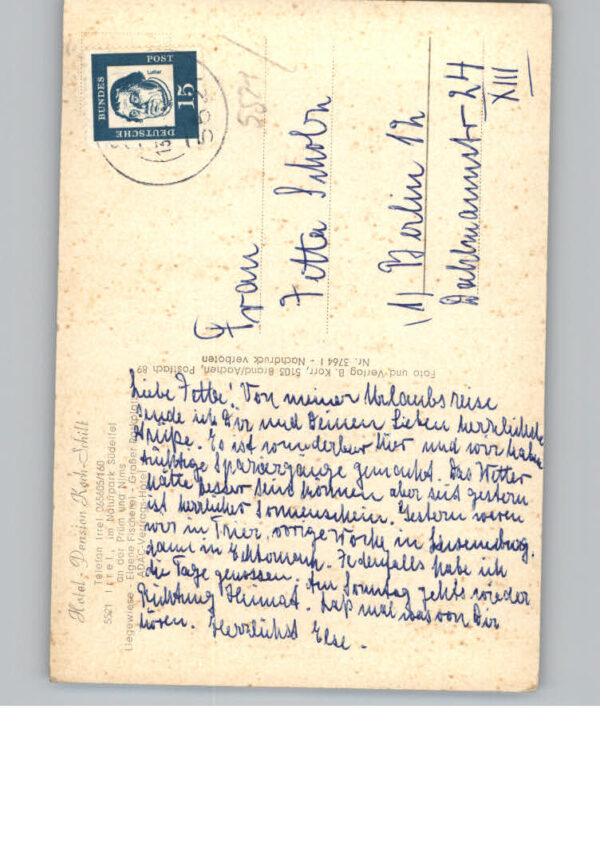 BUNDES
POST
DEUTSCHE
15
Luther
5521
5521
Frau
Jetta
(1) Berlin 12
Dahlmannstr 24
XIII
Foto und Verlag B. Korr, 5105 Brand/Aachen, Postfach 89
Nr. 3764 I - Nachdruck verboten
Hotel - Pension Koch-Schilt
Telefon Irrel (06505)/160
5521 Irrel, im Naturpark Südeifel
an der Prüm und Nims
Liegewiese - Eigene Fischerei - Großer Parkplatz
Liebe Jette! Von meiner Urlaubsreise
sende ich Dir und Deinen Lieben herzlichste
Grüße. Es ist wunderbar hier und wir haben
tüchtige Spaziergänge gemacht. Das Wetter
hätte besser sein können aber seit gestern
ist herrlicher Sonnenschein. Gestern waren
wir in Trier, vorige Woche in Luxemburg.
dann in Echternach. Jedenfalls habe ich
die Tage genossen. Am Sonntag gehts wieder
Richtung Heimat. Laß mal was von Dir
hören. Herzlichst Else.